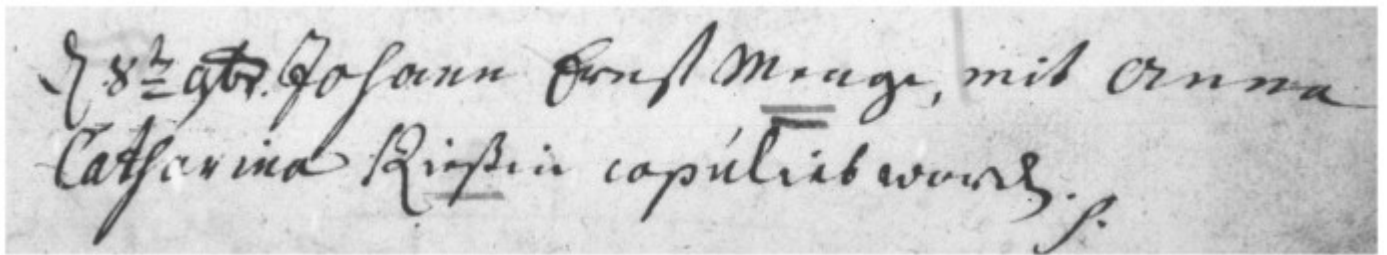 d 8t 9br. Johann Ernst Menge, mit Anna
Catharina Kießin copulirt word.